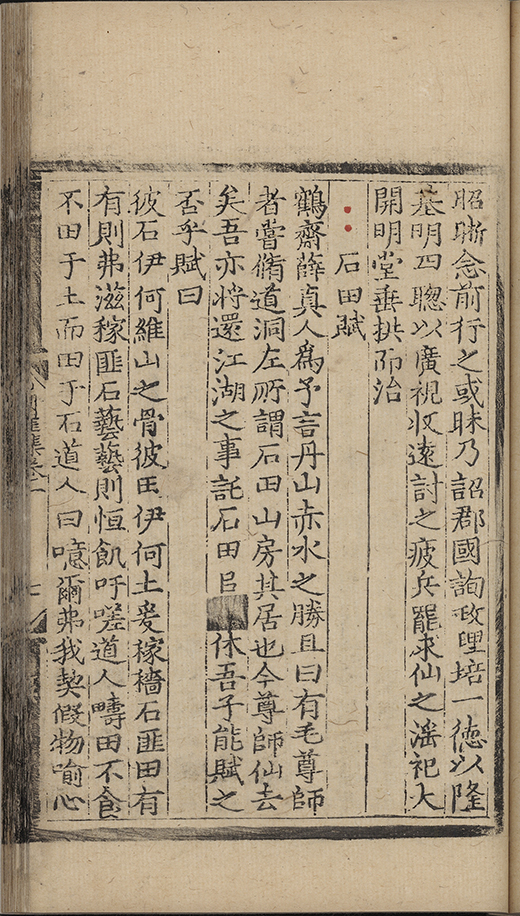 昭晰念前行之或昧乃詔郡國詢政理培一德以隆
基明四聰以廣視收遠討之疲兵罷求仙之滛祀大
開明堂垂拱而治
石田賦
鶴齋薛真人爲予言丹山赤水之勝且曰有毛尊師
者嘗脩道洞左所謂石田山房其居也今尊師仙去
矣吾亦將還江湖之事託石田㠯休吾子能賦之
否乎賦曰
彼石伊何維山之骨彼田伊何土爰稼穡石匪田有
有則弗滋稼匪石藝藝則恒飢吁嗟道人疇田不食
不田于土而田于石道人曰噫爾弗我契假物喻心
集卷一
七